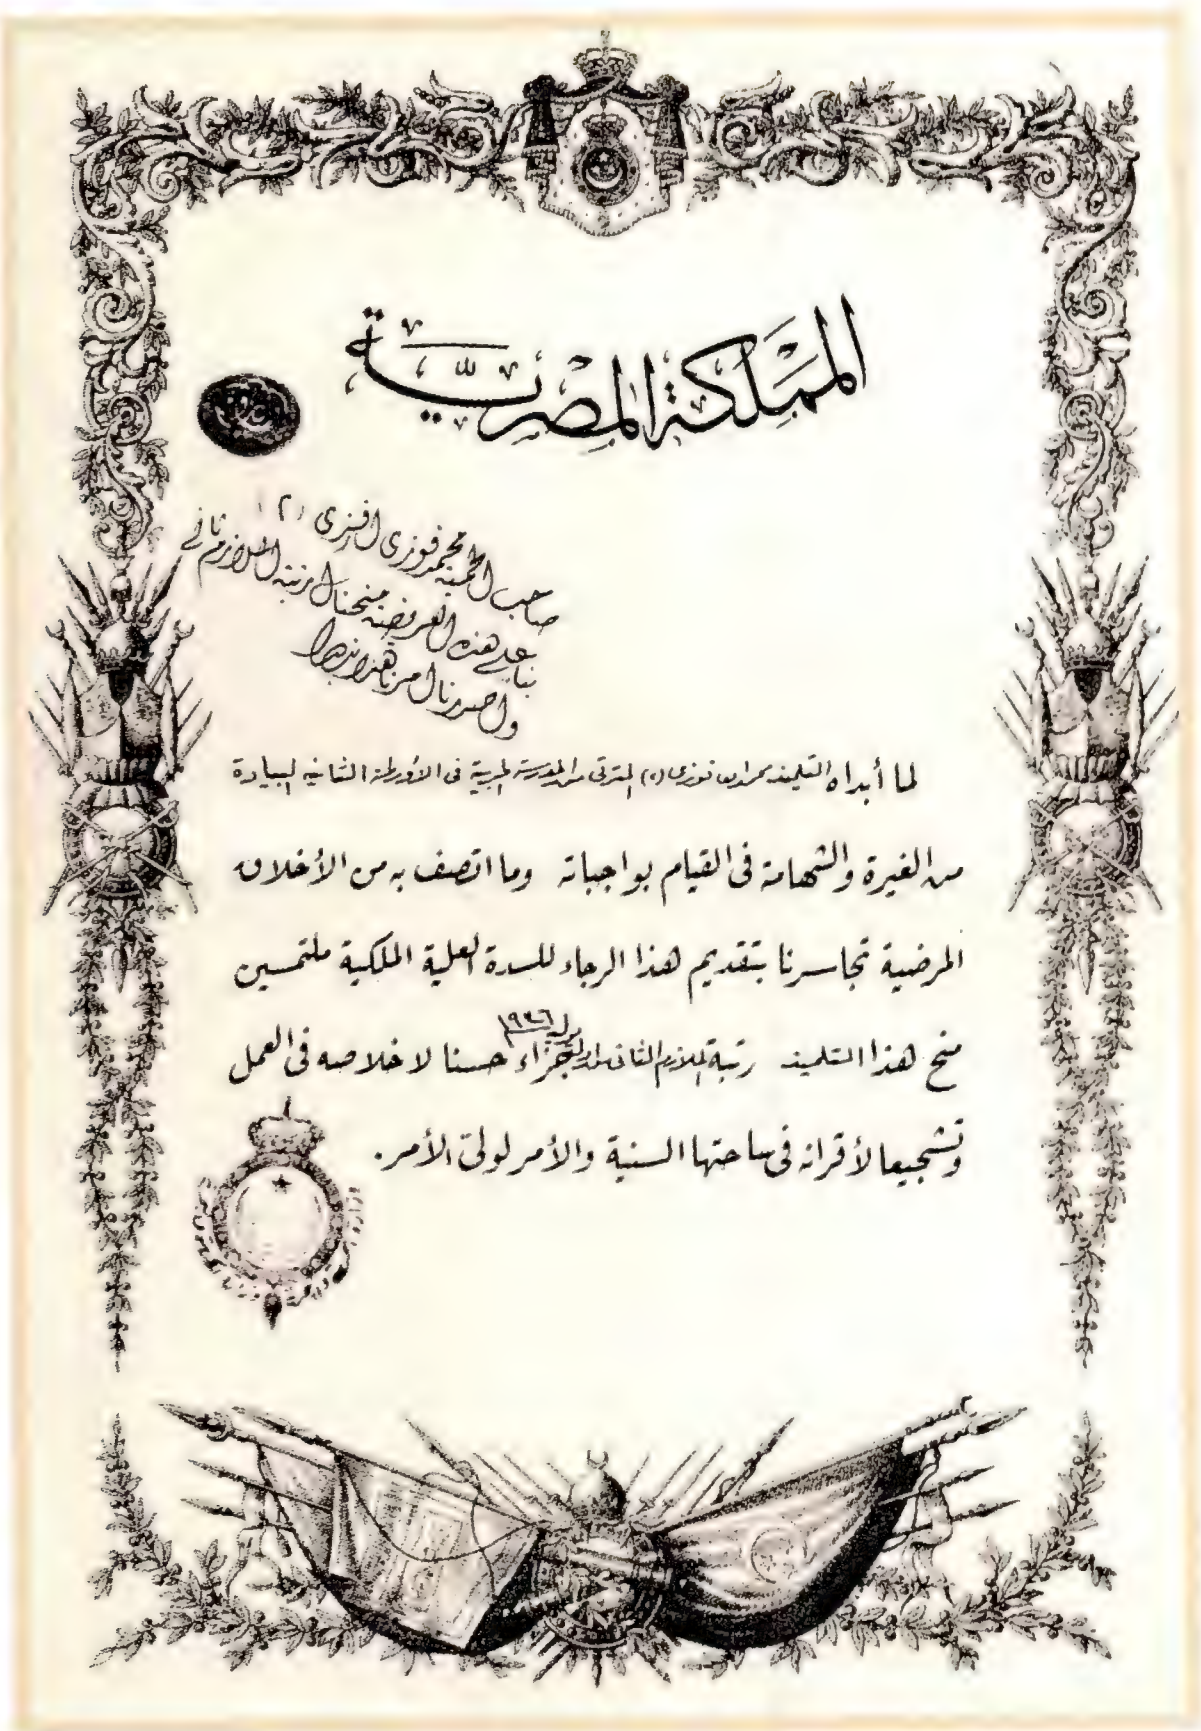 المملكة المصرية
صاحب الحمية محمد فوزى افندى (٢)
بناء على هذه العريضة منحناك رتبة الملازم ثانى
واصدرنا امرنا هذا بذلك
لما أبداه التلميذ محمد فوزى (٢) المترقى من المدرسة الحربية فى الأورطة الثانية البيادة
من الغيرة والشهامة فى القيام بواجباته وما اتصف به من الأخلاق
المرضية تجاسرنا بتقديم هذا الرجاء للسدة العلية الملكية ملتمسين
منح هذا التلميذ رتبة الملازم الثانى ١٩٣٦ جزاء حسنا لاخلاصه فى العمل
وتشجيعا لأقرانه فى ساحتها السنية والأمر لولى الأمر.